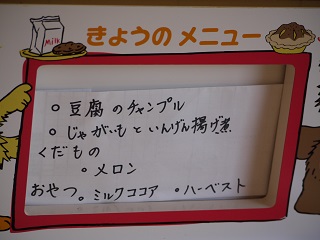 Milk
きょうの メニュー
○ 豆腐 のチャンプル
○ じゃがいもといんげん揚げ煮
くだもの
○ メロン
おやつ。ミルクココア ○ハーベスト